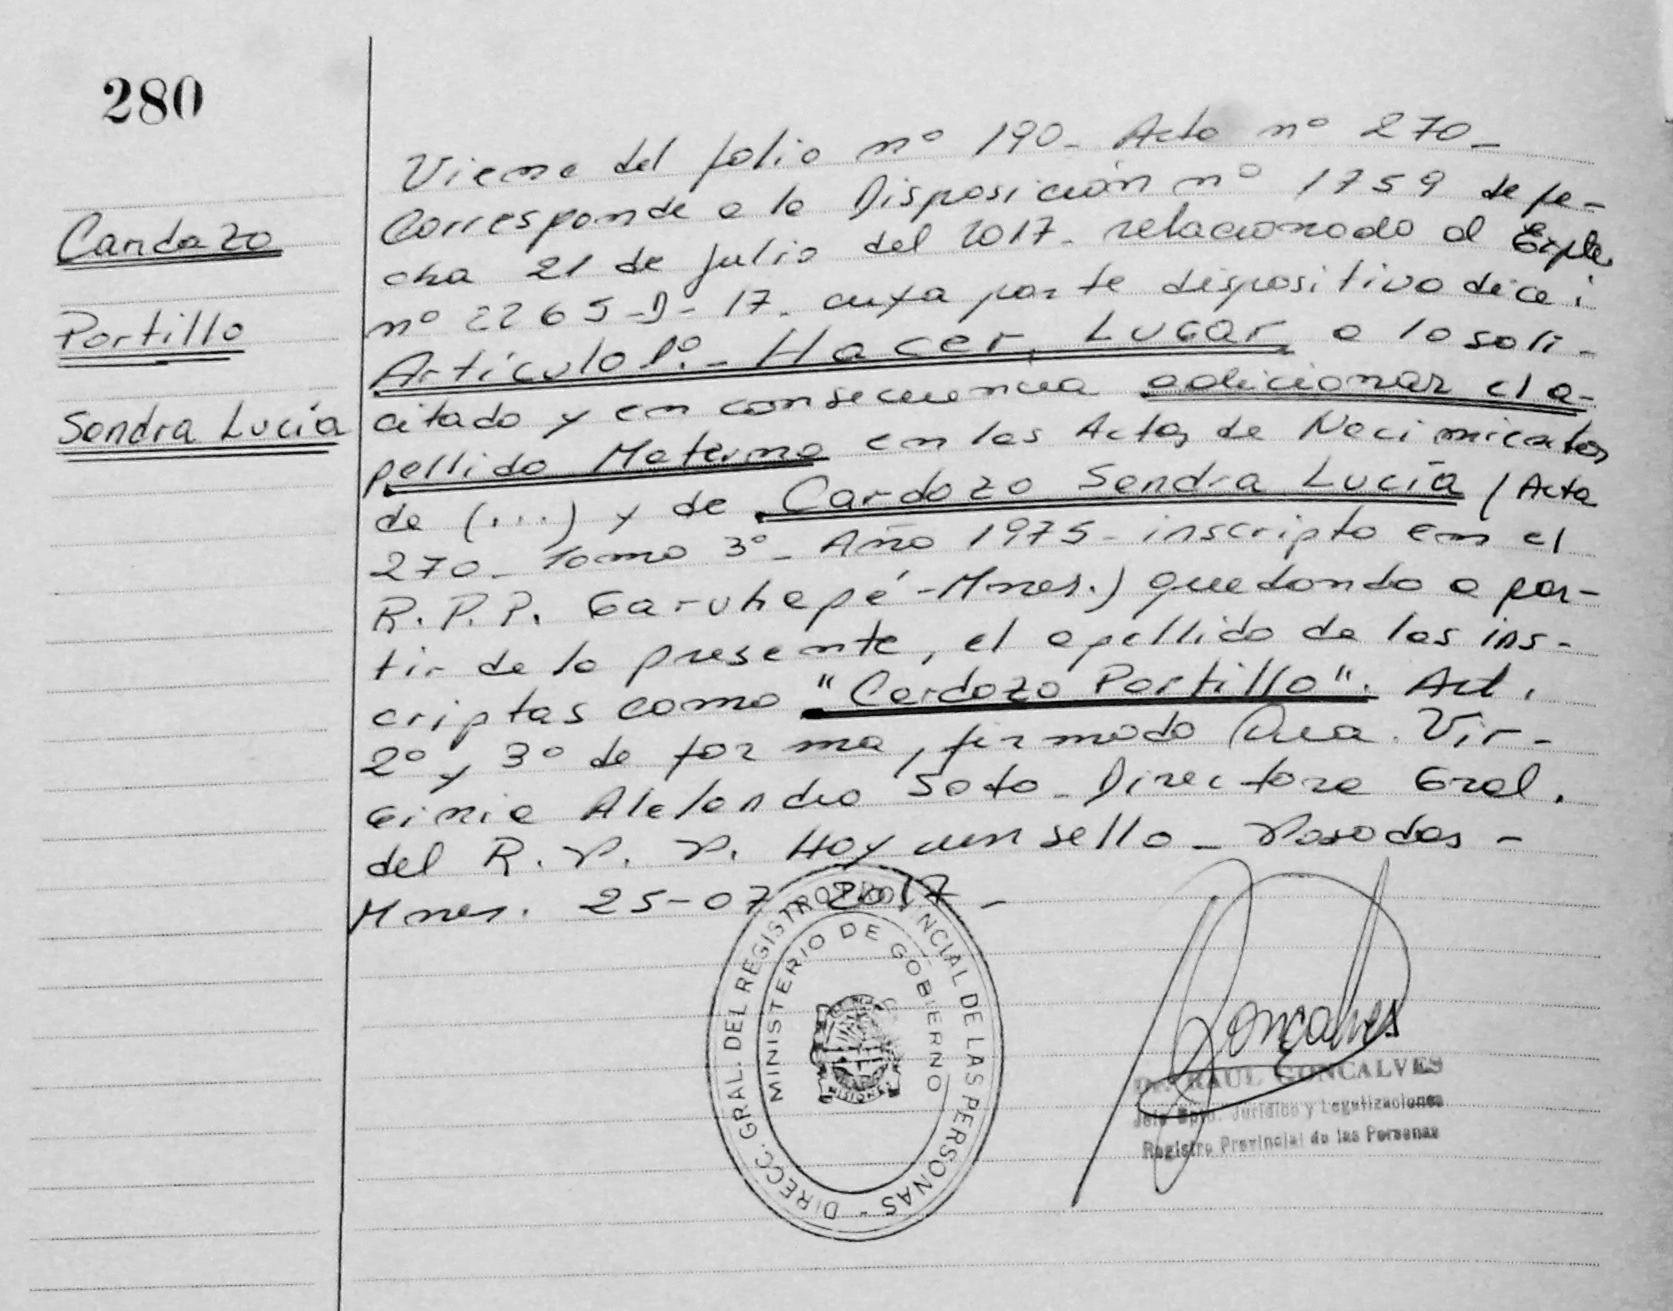 280
Cardozo
Portillo
Sandra Lucía
Viene del folio nº 190- Acta nº 270-
Corresponde a la Disposición nº 1759 de fe-
cha 21 de Julio del 2017- relacionado al Expte
nº 2265-D-17. cuya parte dispositiva dice:
Artículo 1º.- Hacer Lugar a lo soli-
citado y en consecuencia adicionar el a-
pellido Materno en las Actas de Nacimientos
de (...) y de Cardozo Sandra Lucía (Acta
270- Tomo 3º- Año 1975- inscripto en el
R.P.P. Garuhapé-Mnes.) quedando a par-
tir de la presente, el apellido de las ins-
criptas como "Cardozo Portillo". Art.
2º y 3º de forma, firmado Dra. Vir-
ginia Alejandra Soto- Directora Gral.
del R.P.P. Hay un sello- Posadas-
Mnes. 25-07-2017-
DIRECC. GRAL. DEL REGISTRO PROVINCIAL DE LAS PERSONAS -
MINISTERIO DE GOBIERNO
MISIONES
Goncalves
Dr. RAUL GONCALVES
Jefe Dpto. Jurídico y Legalizaciones
Registro Provincial de las Personas